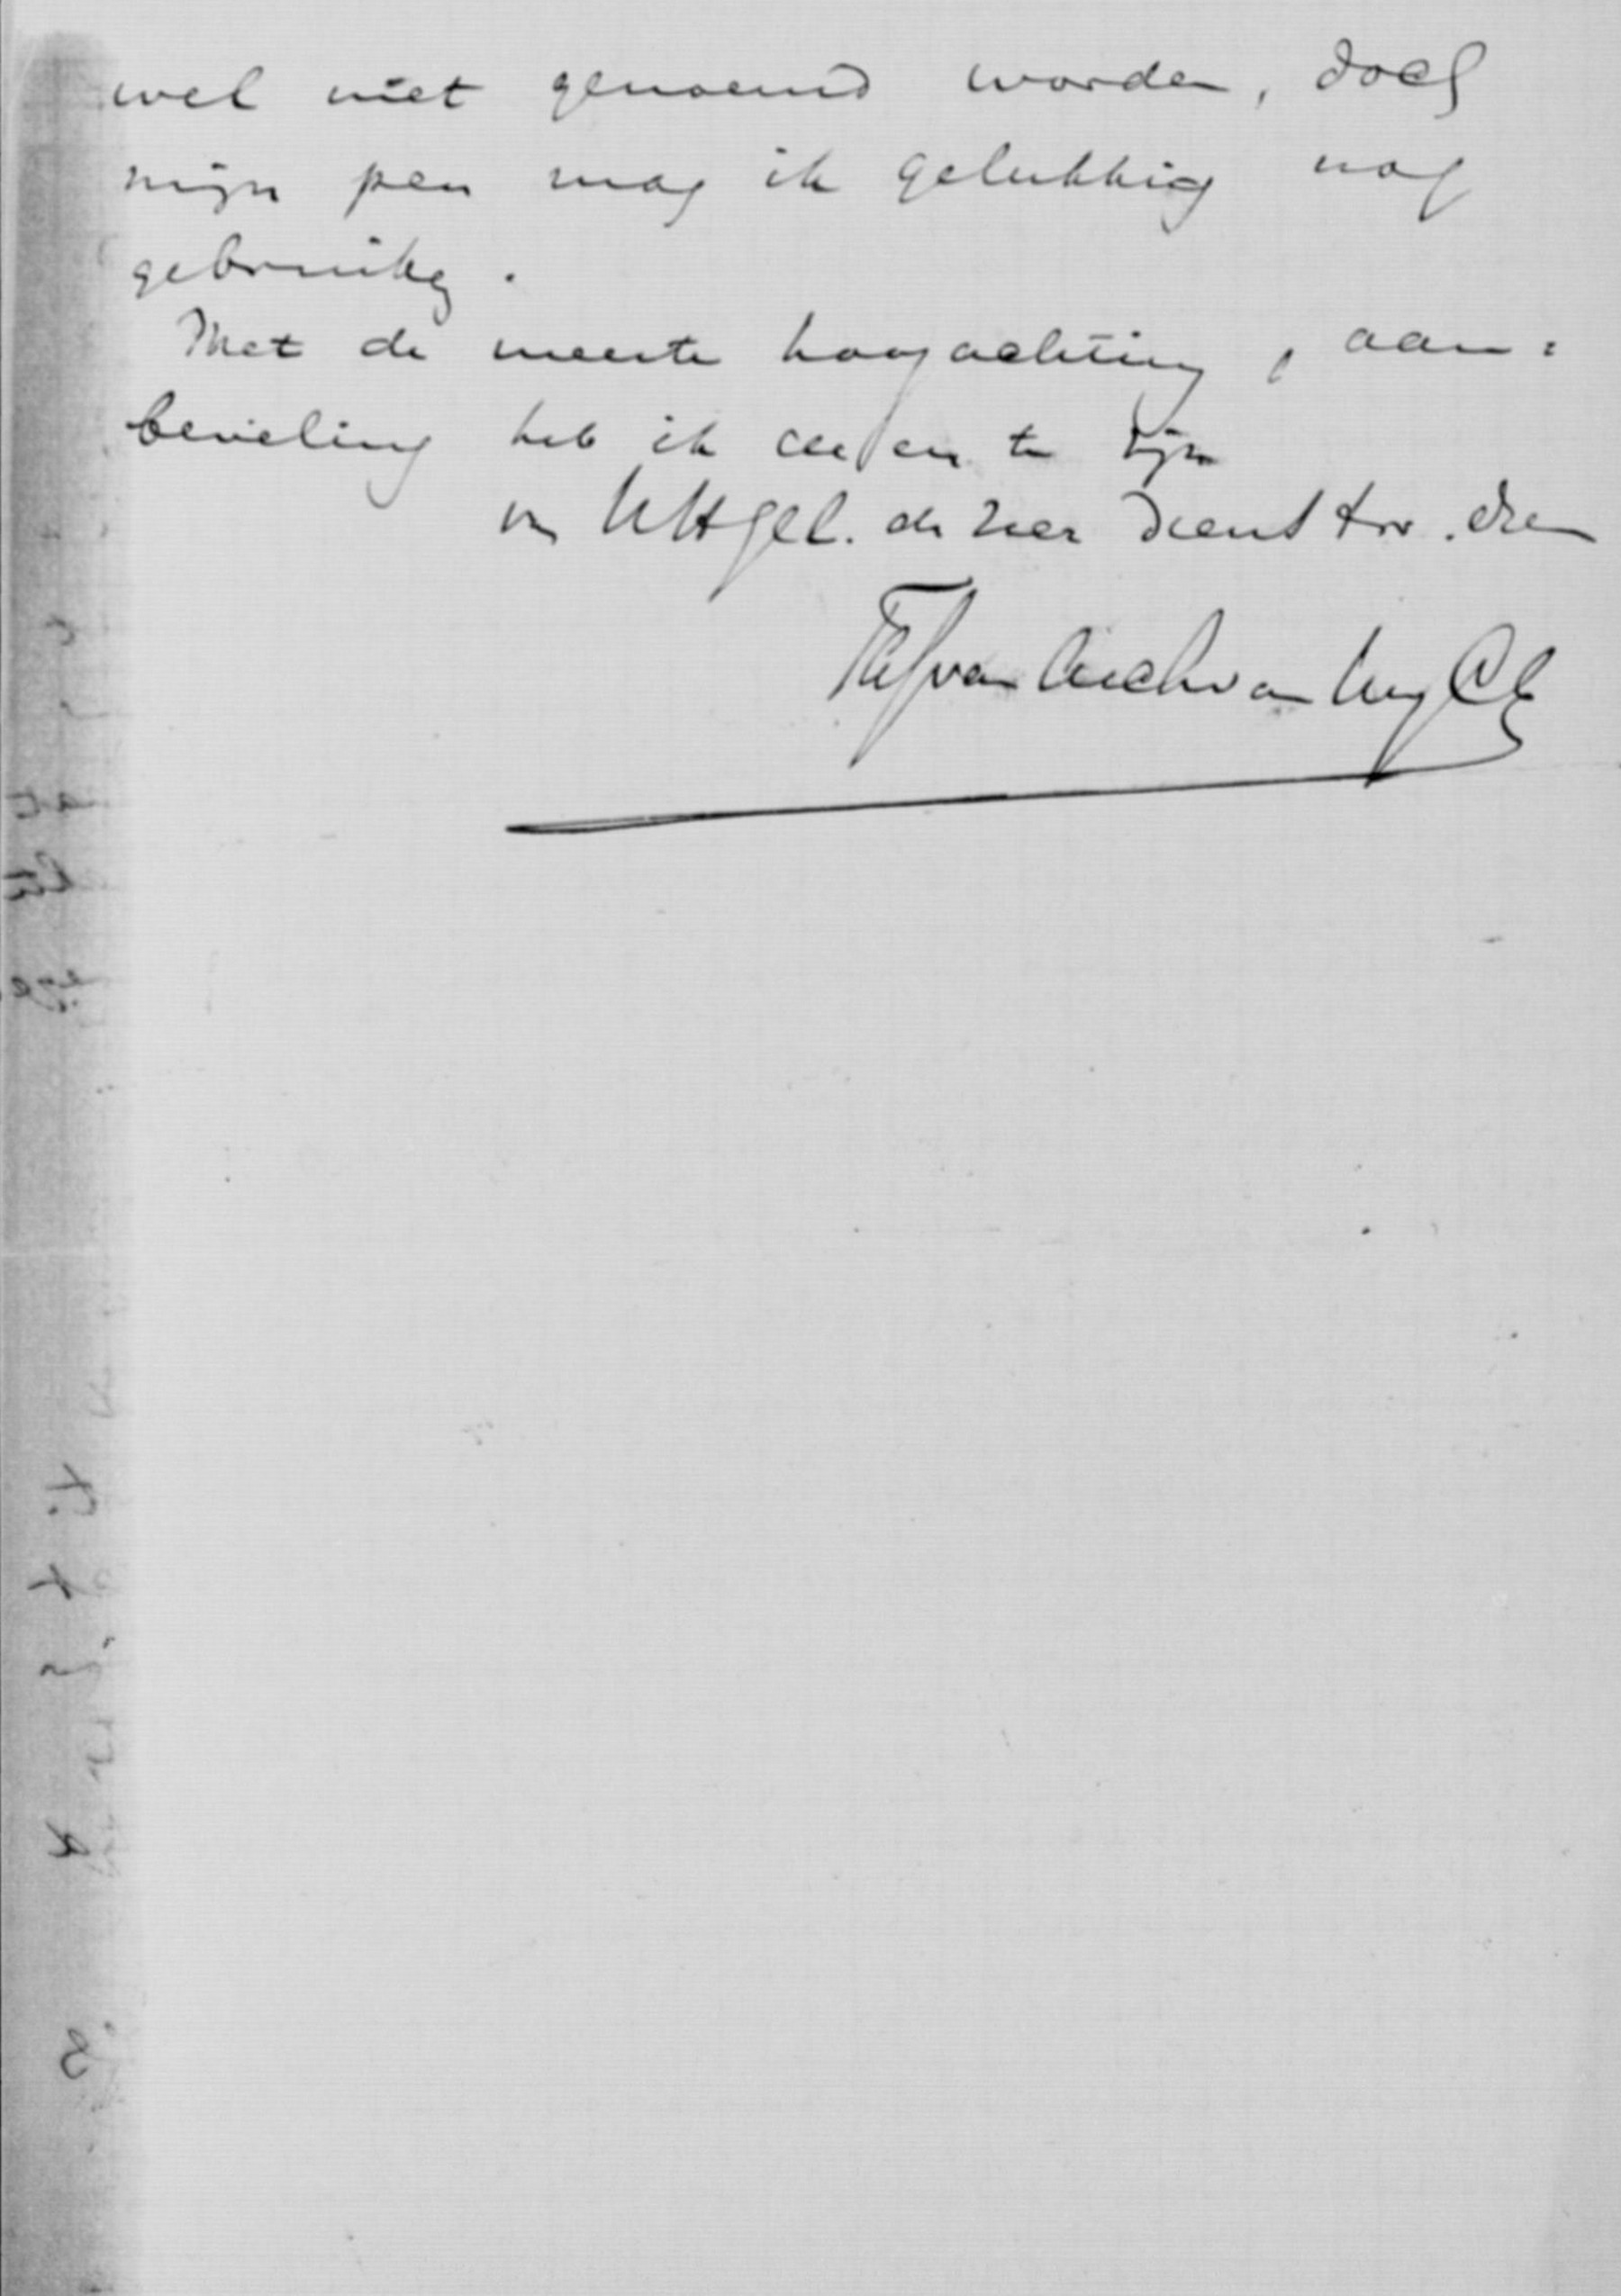 wel niet genoemd worden, doch
mijn pen mag ik gelukkig nog
gebruiken.
Met de meeste hoogachting, aan=
beveling heb ik de eer te zijn
UHgel. dw
van van